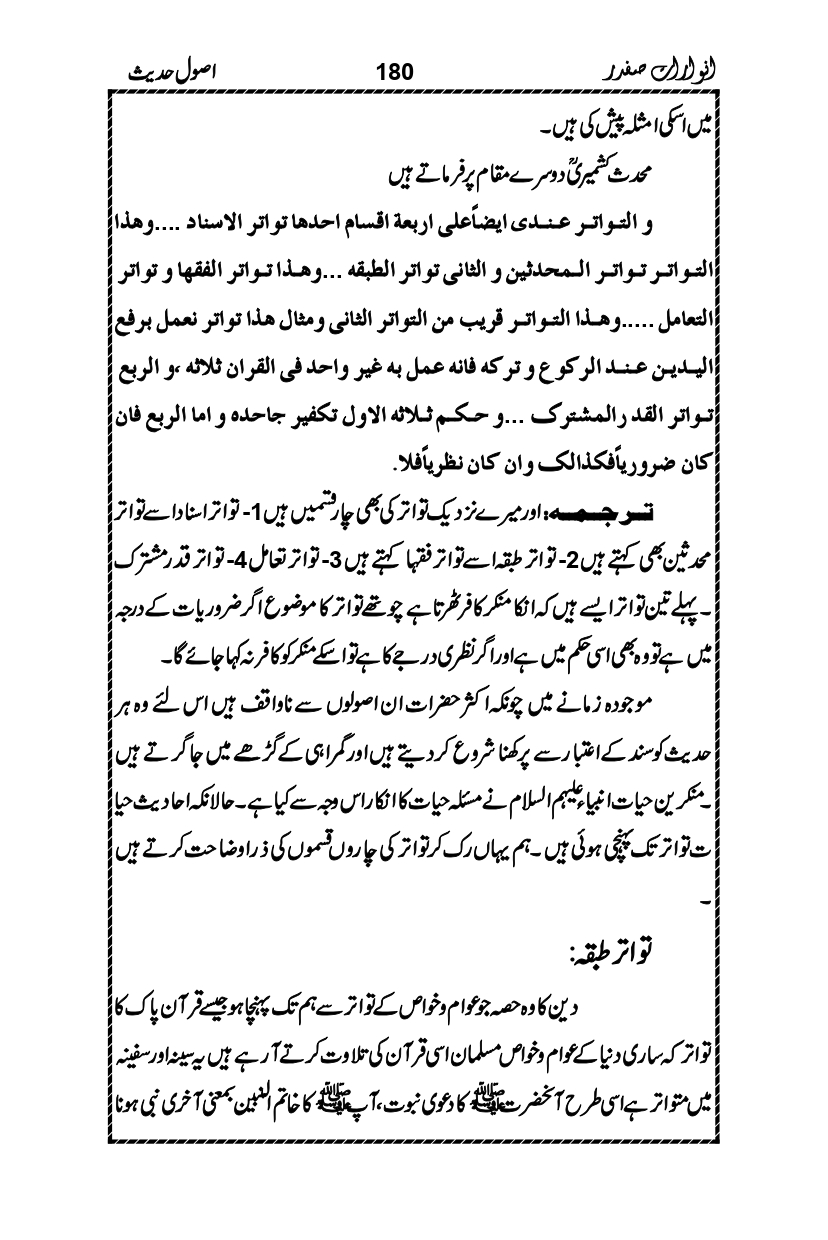 انوارات صفدر 180 اصول حدیث
میں اسکی امثلہ پیش کی ہیں۔
محدث کشمیریؒ دوسرے مقام پر فرماتے ہیں
و التواتر عندی ایضاً علی اربعة اقسام احدها تواتر الاسناد ....وهذا
التواتر تواتر المحدثین و الثانی تواتر الطبقه ...وهذا تواتر الفقها و تواتر
التعامل .....وهذا التواتر قریب من التواتر الثانی ومثال هذا تواتر نعمل برفع
الیدین عند الرکوع و ترکه فانه عمل به غیر واحد فی القران ثلاثه ،و الربع
تواتر القدر المشترک ...و حکم ثلاثه الاول تکفیر جاحده و اما الربع فان
کان ضروریاً فکذالک وان کان نظریاً فلا.
ترجمہ: اور میرے نزدیک تواتر کی بھی چار قسمیں ہیں 1- تواتر اسناد اسے تواتر
محدثین بھی کہتے ہیں 2- تواتر طبقہ اسے تواتر فقہا کہتے ہیں 3- تواتر تعامل 4- تواتر قدر مشترک
۔ پہلے تین تواتر ایسے ہیں کہ انکا منکر کافر ٹھرتا ہے چوتھے تواتر کا موضوع اگر ضروریات کے درجہ
میں ہے تو وہ بھی اسی حکم میں ہے اور اگر نظری درجے کا ہے تو اسکے منکر کو کافر نہ کہا جائے گا۔
موجودہ زمانے میں چونکہ اکثر حضرات ان اصولوں سے ناواقف ہیں اس لئے وہ ہر
حدیث کو سند کے اعتبار سے پرکھنا شروع کر دیتے ہیں اور گمراہی کے گڑھے میں جا گرتے ہیں
۔ منکرین حیات انبیاء علیہم السلام نے مسئلہ حیات کا انکار اس وجہ سے کیا ہے۔ حالانکہ احادیث حیا
ت تواتر تک پہنچی ہوئی ہیں ۔ ہم یہاں رک کر تواتر کی چاروں قسموں کی ذرا وضاحت کرتے ہیں
۔
تواتر طبقہ:
دین کا وہ حصہ جو عوام و خواص کے تواتر سے ہم تک پہنچا ہو جیسے قرآن پاک کا
تواتر کہ ساری دنیا کے عوام و خواص مسلمان اسی قرآن کی تلاوت کرتے آ رہے ہیں یہ سینہ اور سفینہ
میں متواتر ہے اسی طرح آنحضرت ﷺ کا دعوی نبوت، آپ ﷺ کا خاتم النبین بمعنی آخری نبی ہونا